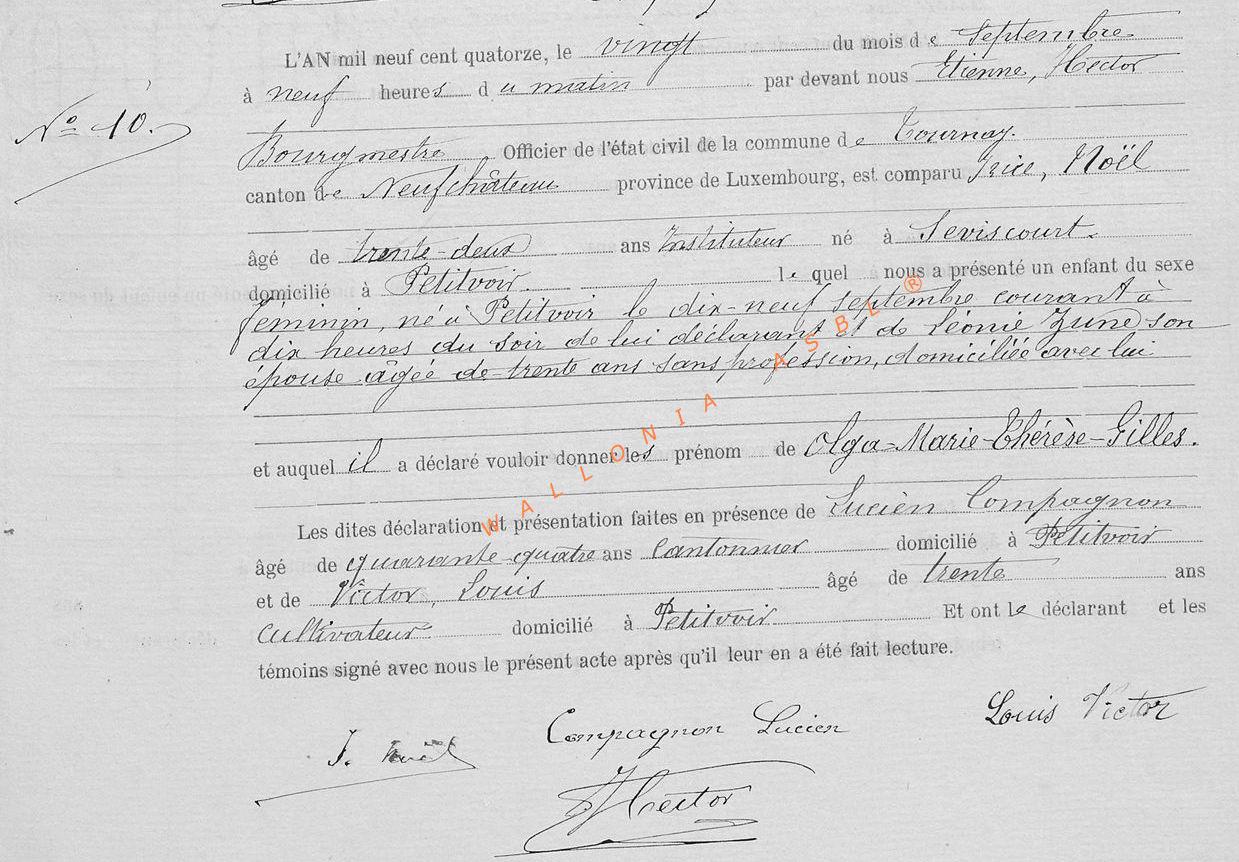 L'AN mil neuf cent quatorze, le vingt du mois de septembre
à neuf heures du matin par devant nous Etienne, Hector
No 10.
Bourgmestre Officier de l'état civil de la commune de Tournay.
canton de Neufchâteau province de Luxembourg, est comparu Noël
âgé de trente-deux ans Instituteur né à Séviscourt.
domicilié à Petitvoir le quel nous a présenté un enfant du sexe
féminin, né à Petitvoir le dix-neuf septembre courant à
dix heures du soir de lui déclarant et de Léonie Zune, son
épouse agée de trente ans sans profession, domiciliée avec lui
et auquel il a déclaré vouloir donner les prénom de Olga-Marie-Thérèse-Gilles.
Les dites déclaration et présentation faites en présence de Lucien Compagnon
âgé de quarante-quatre ans Cantonnier domicilié à Petitvoir
et de Victor, Louis âgé de trente ans
cultivateur domicilié à Petitvoir. Et ont le déclarant et les
témoins signé avec nous le présent acte après qu'il leur en a été fait lecture.
Louis Victor
Compagnon Lucien
J. Noël
Hector
WALLONIA ASBL ®